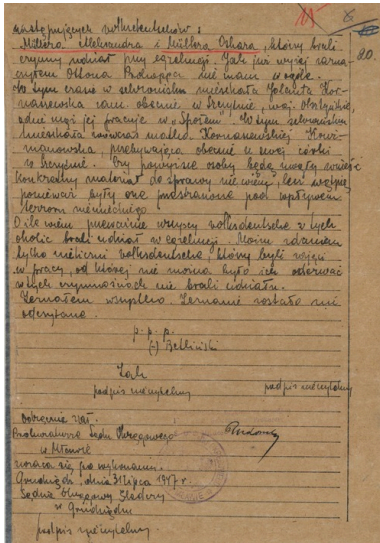 następujących volksdeutschów:
Müllera Aleksandra i Müllera Oskara, którzy brali
czynny udział przy egzekucji. Jak już wyżej zazna-
czyłem Ottona nie znam wogóle.
W tym czasie w schronisku mieszkała Jolanta
sam obecnie w
gdzie mąż jej pracuje w „Społem". W tym schronisku
mieszkała również matka
przebywająca obecnie u swej córki
w Czy powyższe osoby będą mogły wnieść
konkretny materiał do sprawy nie wiem, lecz wątpię,
ponieważ były one zastraszone pod wpływem
terroru niemieckiego.
O ile wiem prawie wszyscy volksdeutsche z tych
okolic brali udział w egzekucji. Moim zdaniem
tylko nieliczni volksdeutsche, którzy byli zajęci
w pracy, od której nie można było ich oderwać
w tych czynnościach nie brali udziału.
Zeznałem wszystko. Zeznanie zostało mi
odczytane.
p. p. p.
(-) Betliński
podpis nieczytelny
podpis nieczytelny
20.
Prokuraturze Sądu Okręgowego
w Mławie
zwraca się po wykonaniu.
Grudziądz, dnia 31 lipca 1947 r.
Sędzia Okręgowy Śledczy
w Grudziądzu
podpis nieczytelny